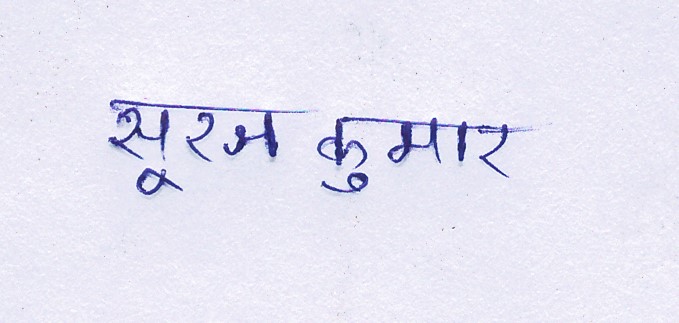 सूरज कुमार